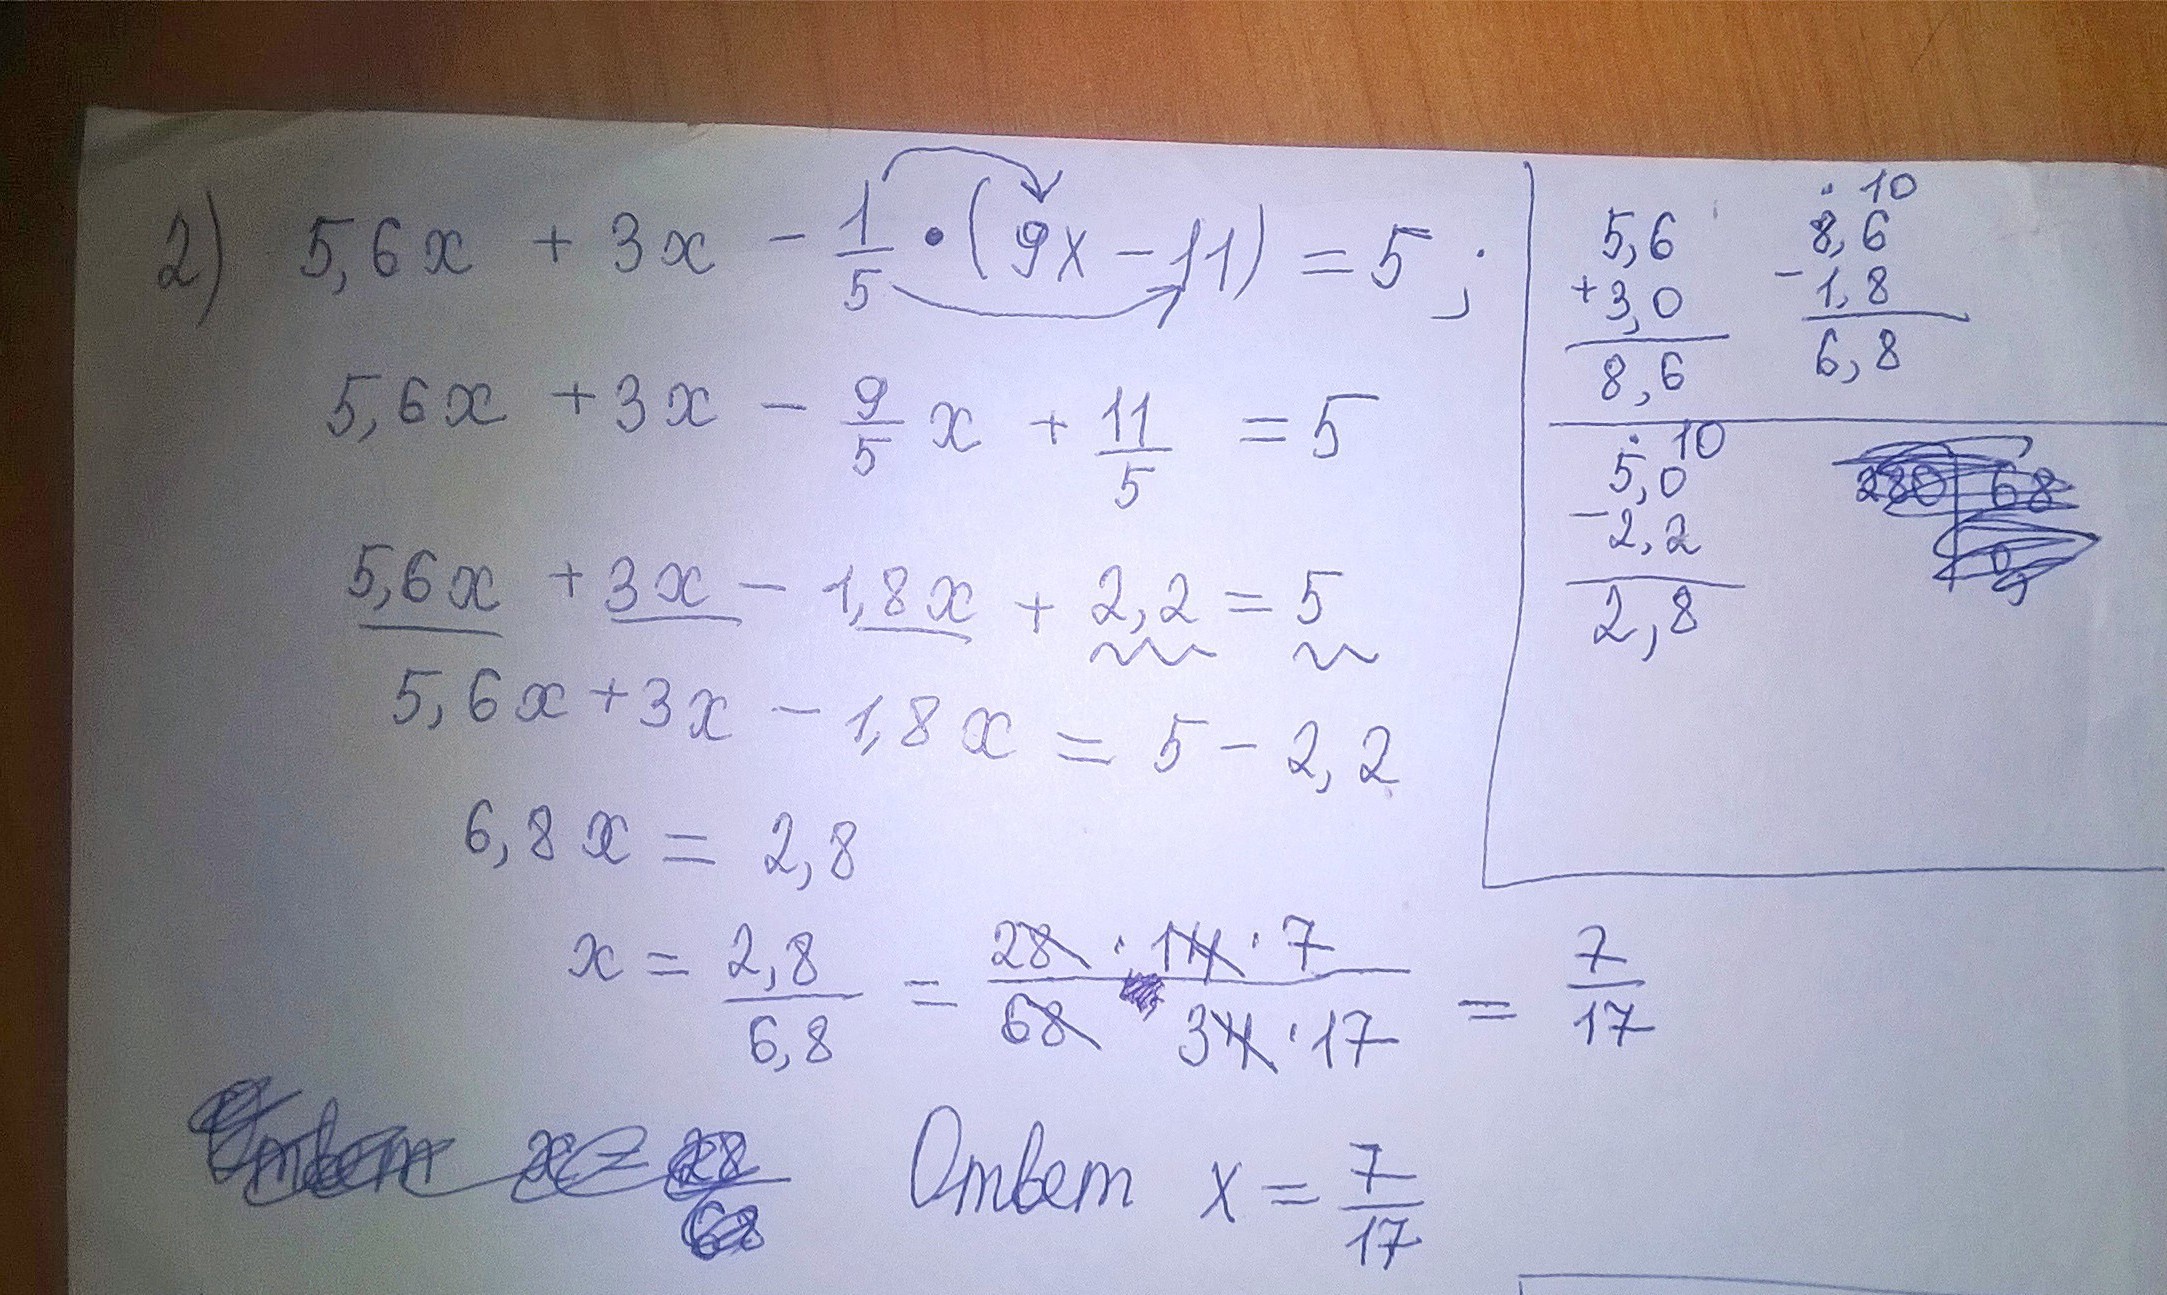 2) 5,6x + 3x - 1/5 • (9x - 11) = 5 ;
5,6x + 3x - 9/5 x + 11/5 = 5
5,6x + 3x - 1,8x + 2,2 = 5
5,6x + 3x - 1,8x = 5 - 2,2
6,8x = 2,8
x = 2,8/6,8 = 28 · 14 · 7/68 34 · 17 = 7/17
Ответ x = 7/17
5,6
+3,0
8,6
· 10
8,6
-1,8
6,8
· 10
5,0
-2,2
2,8